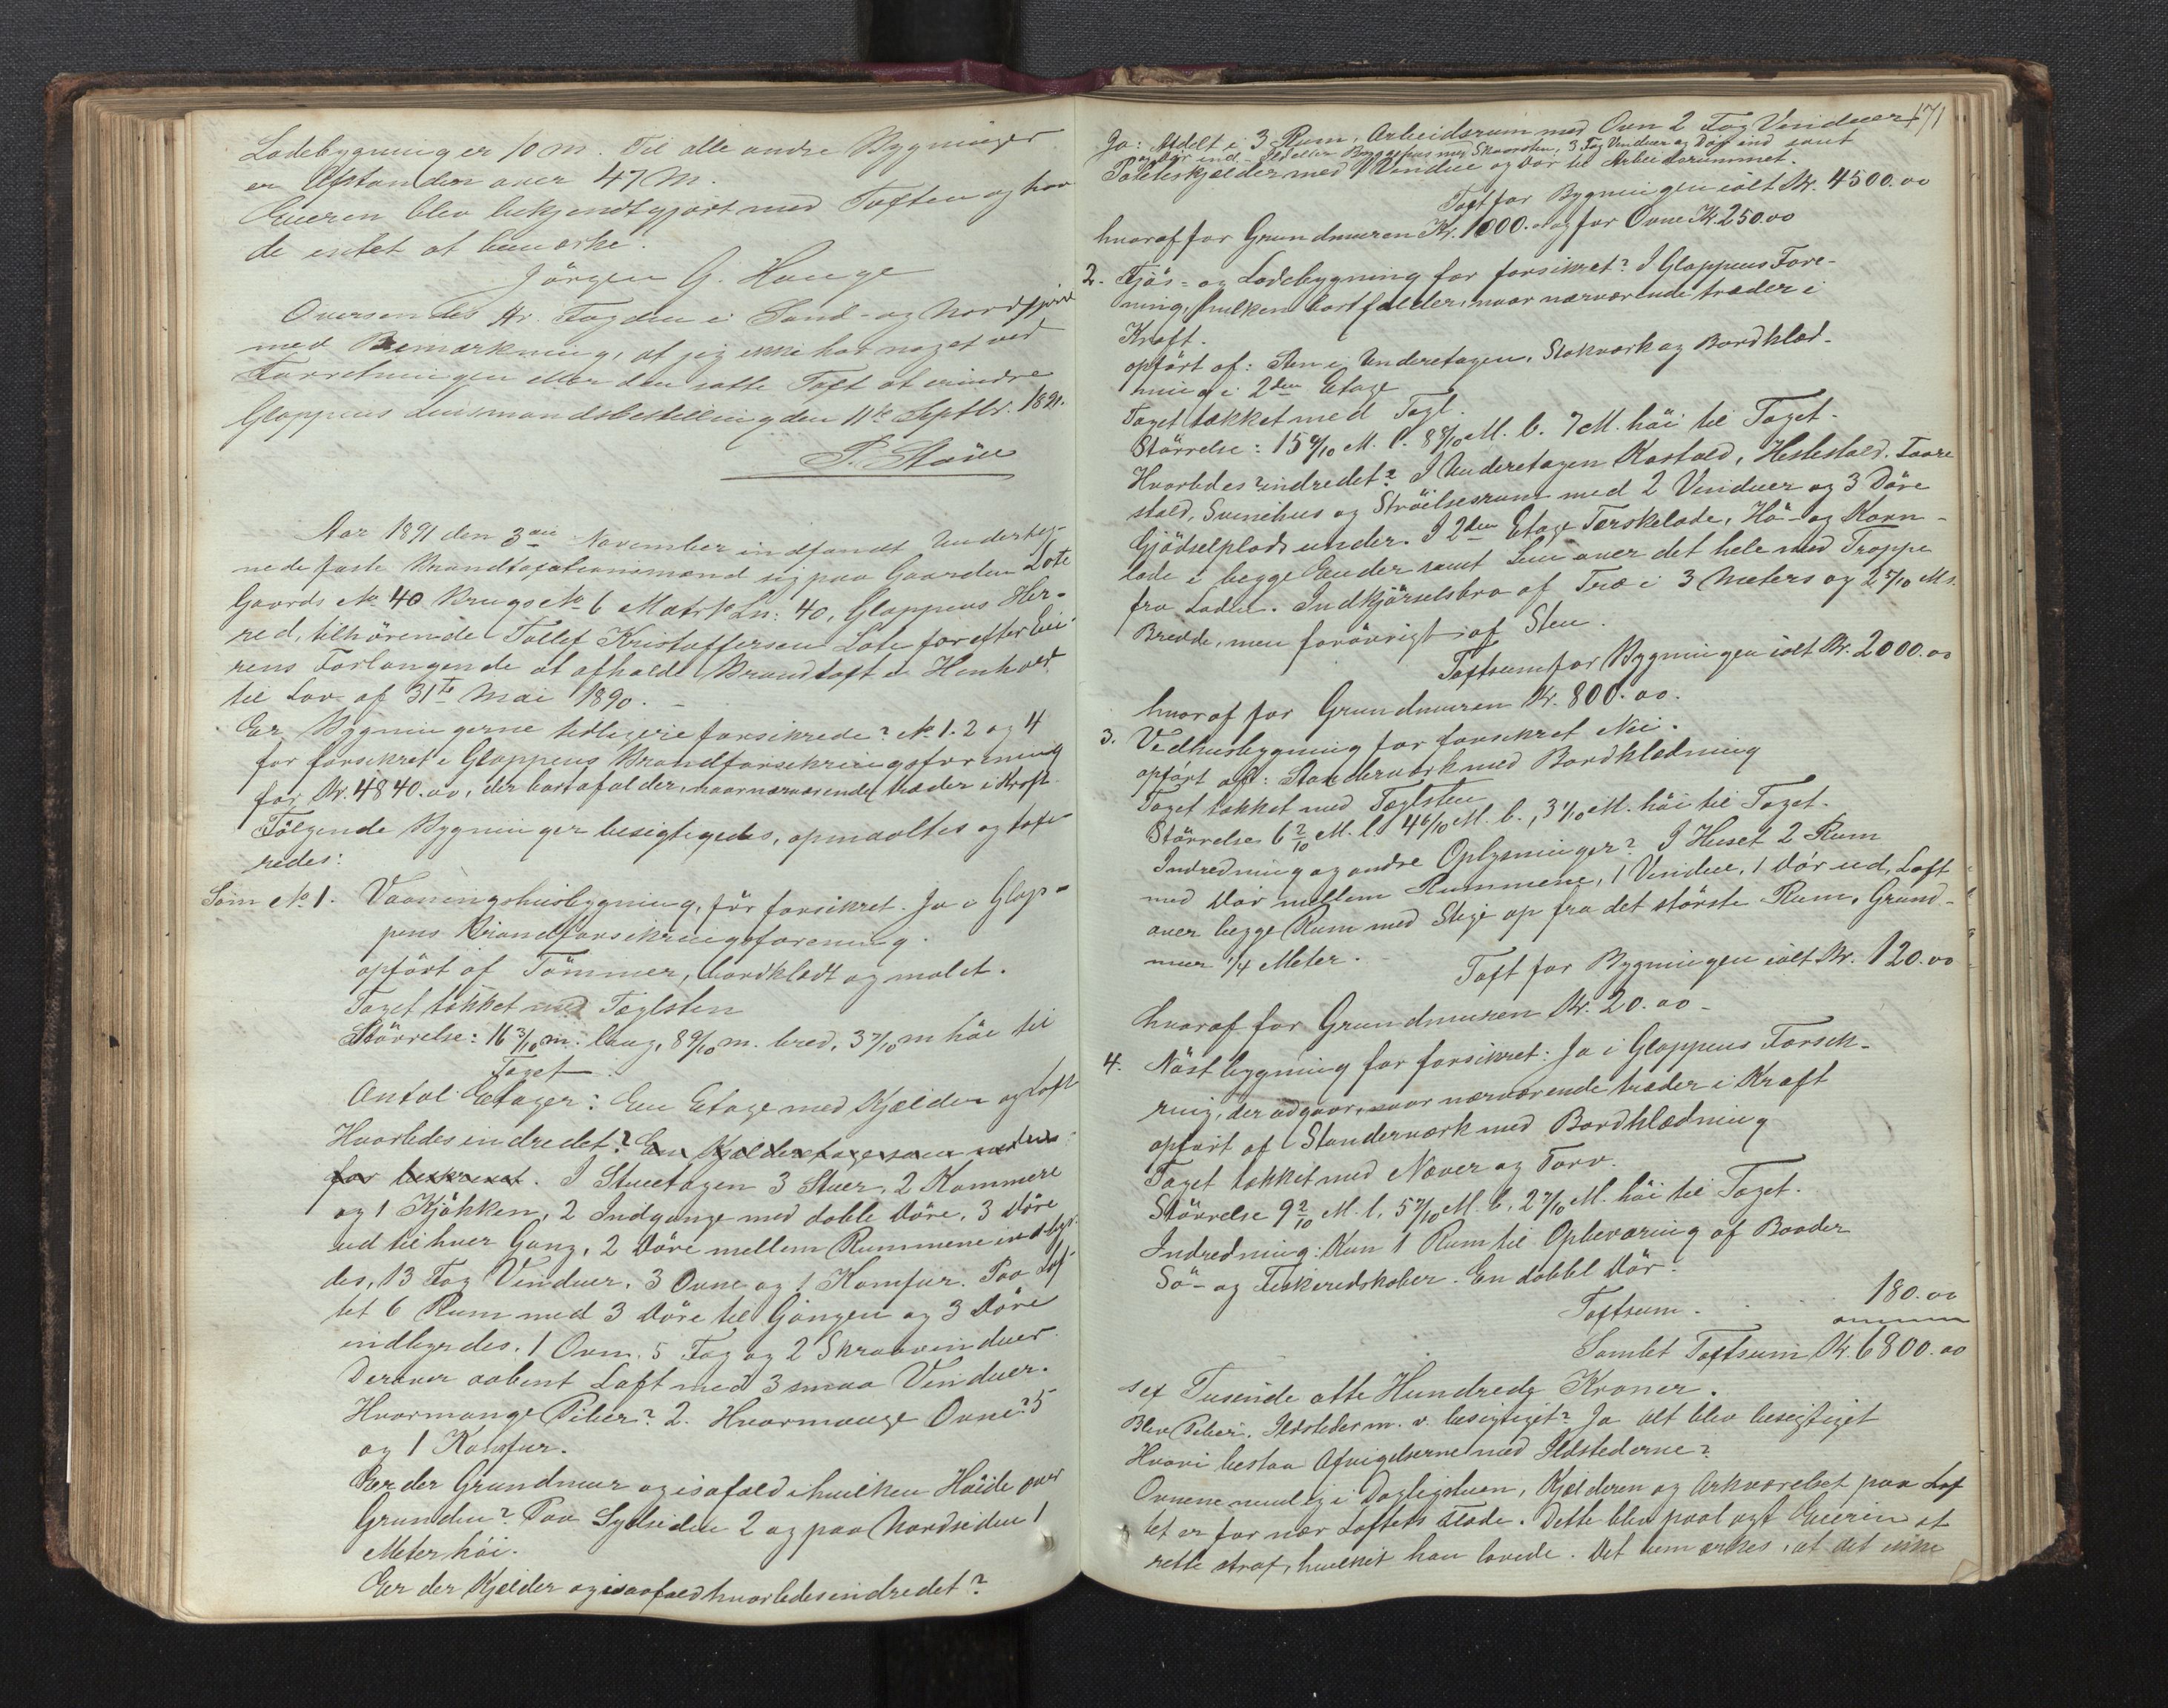 Ladebygning er 10 m. Til alle andre Bygninger
er Afstanden over 47 M.
Eieren blev bekjendtgjort med Taften og hav
de intet at bemærke.
Jörgen G. Hauge
Oversendes Hr. Fogden i Sönd- og Nordfjord
med Bemærkning, at jeg ikke har noget ved
Forretningen eller den satte Taft at erindre
Gloppens Lensmandsbestilling den 11te Septbr. 1891.
Aar 1891 den 3die November indfandt Underteg-
nede faste Brandtaxationsmænd sig paa Gaarden Lote
Gaards No 40 Brugs No 6 Matrk Ln: 40, Gloppens Her-
red, tilhörende Tollef Kristoffersen Lote for efter Eie-
rens Forlangende at afholde Brandtaft i Henhold
til Lov af 31te Mai 1890. -
Er Bygningerne tidligere forsikrede? No 1. 2 og 4
før forsikret i Gloppens Brandforsikringsforening
for Kr. 4840.00, der bortafalder, naar nærværende træder i Kraft.
Følgende Bygninger besigtigedes, opmaaltes og taxe
redes:
Som No 1. Vaaningshusbygning, før forsikret. Ja i Glop-
pens Brandforsikringsforening.
opfört af Tömmer, bordklædt og malet.
Taget tækket med Taglsten
Större­lse: 16 3/10 m: lang, 8 9/10 m. bred, 3 7/10 m höi til
Taget.
Antal Etager: En Etage med Kjælder og Loft
Hvorledes indredet? En Kjælderetage som
før beskrevet. I Stuetagen 3 Stuer, 2 Kammere
og 1 Kjökken, 2 Indgange med doble Döre, 3 Döre
ud til hver Gang, 2 Döre mellem Rummene indbyr-
des, 13 Fag Vinduer. 3 Ovne og 1 Komfur. Paa Lof-
tet 6 Rum med 3 Döre til Gangen og 3 Döre
indbyrdes. 1 Ovn. 5 Fag og 2 Skraavinduer.
Derover aabent Loft med 3 smaa Vinduer.
Hvormange Piber? 2. Hvormange Ovne? 5
og 1 Komfur.
Er der Grundmur og isafald i hvilken Höide over
Grunden? Paa Sydsiden 2 og paa Nordsiden 1
Meter höi.
Er der Kjælder og isaafald hvorledes indredet?
171
Ja: Afdelt i 3 Rum, Arbeidsrum med Ovn 2 Fag Vinduer
og Dör ind. Ildeller Bryggehus med Skorsten, 3 Fag Vinduer og Dör ind samt
Poteteskjælder med 1 Vindue og Dör til Arbeidsrummet.
Taft for Bygningen ialt Kr. 4500.00
hvoraf for Grundmuren Kr. 1000. og for Ovne Kr. 250.00
2. Fjös- og Ladebygning før forsikret? I Gloppens Fore-
ning, hvilken bortfalder, naar nærværende træder i
Kraft.
opfört af: Sten i Underetagen, Stokværk og Bordklæd-
ning i 2den Etage
Taget tækket med Tagl.
Större­lse: 15 9/10 M. l. 8 8/10 M. b. 7 M. höi til Taget.
Hvorledes indredet? I Underetagen Kostald, Hestestald, Faare
stald, Svinehus og Ströilsesrum med 2 Vinduer og 3 Döre
Gjödselplads under. I 2den Etage Tærskelade, Hö- og Korn-
lade i begge Ender samt Lem over det hele med Trappe
fra Laden. Indkjörselsbro af Træ i 3 Meters og 2 7/10 Ms.
Bredde, men forövrigt af Sten.
Taftsum for Bygningen ialt Kr. 2000.00
hvoraf for Grundmuren Kr. 800.00.
3. Vedhusbygning før forsikret Nei.
opfört af: Standerværk med Bordklædning
Taget tækket med Taglsten
Större­lse 6 2/10 M. l. 4 6/10 M. b., 3 1/10 M. höi til Taget.
Indredning og andre Oplysninger? I Huset 2 Rum
med Dör mellem Rummene, 1 Vindue, 1 Dör ud, Loft
over begge Rum med Stige op fra det störste Rum, Grund-
mur 1/4 Meter. -
Taft for Bygningen ialt Kr. 120.00
hvoraf for Grundmuren Kr. 20.00 -
4. Nöstbygning før forsikret: Ja i Gloppens Forsik-
ring, der udgaar, naar nærværende træder i Kraft
opfört af Standerværk med Bordklædning
Taget tækket med Næver og Torv.
Större­lse 9 2/10 M. l. 5 7/10 M. b. 2 7/10 M. höi til Taget.
Indredning: Kun 1 Rum til Opbevaring af Baader
Sö- og Fiskeredskaber. En dobbel Dör.
Taftsum. - 180.00
Samlet Taftsum Kr. 6800.00
sex Tusende otte Hundrede Kroner.
Blev Piber, Ildsteder m. v. besigtiget? Ja Alt blev besigtiget
Hvori bestaa Afvigelserne med Ildstederne?
Ovnene nemlig i Dagligstuen, Kjælderen og Arkværelset paa Lof
tet er for nær Loftets Flade. Dette blev paalagt Eieren at
rette straf, hvilket han lovede. Det bemærkes, at det ikke